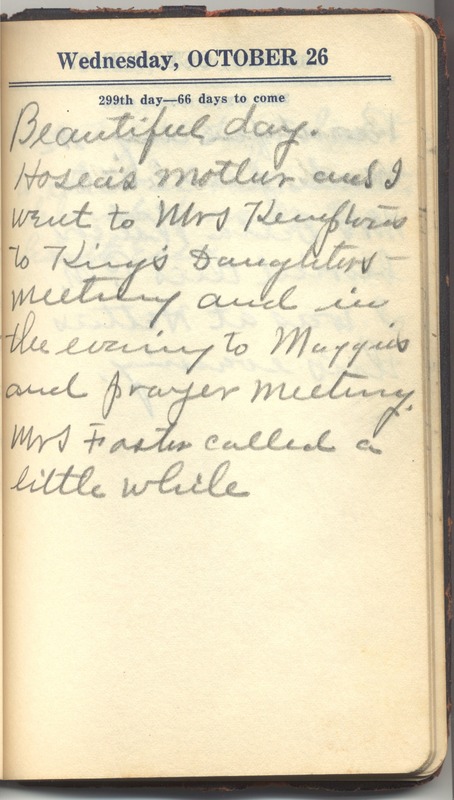 Wednesday, OCTOBER 26
299th day—66 days to come
Beautiful day.
Hosea's mother and I
went to Mrs
to King's Daughters
meeting and in
the evening to Maggies
and prayer meeting.
Mrs Foster called a
little while